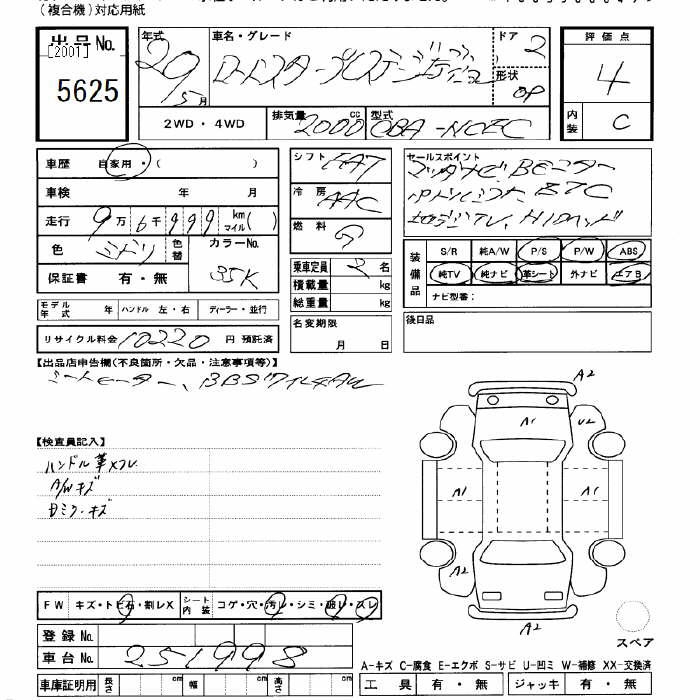 (複合機)対応用紙
出品No.
[2001]
5625
年式
29
5月
車名・グレード
ドア
2
形状
OP
評価点
4
内装
C
2WD・4WD
排気量
2000
cc
型式
CBA-NCEC
車歴
自家用・( )
車検 年 月
走行 9万6千999km マイル( )
色 ミドリ
色替
カラーNo.
35K
保証書 有・無
モデル年式 年 ハンドル 左・右 ディーラー・並行
リサイクル料金 10220 円 預託済
シフト FA7
冷房 AAC
燃料 G
乗車定員 2 名
積載量 kg
総重量 kg
名変期限
月 日
セールスポイント
装備品
S/R 純A/W P/S P/W ABS
純TV 純ナビ 革シート 外ナビ エアB
ナビ型番:
後日品
【出品店申告欄(不良箇所・欠品・注意事項等)】
シートヒーター、BBSワイド4AW
【検査員記入】
ハンドル革スレ
A/Wキズ
Dミラーキズ
A2
A1
U2
A1
A1
A2
A2
スペア
FW キズ・トビ石・割レX
シート内装 コゲ・穴・汚レ・シミ・破レ・スレ
登録No.
車台No. 251998
車庫証明用 長さ cm 幅 cm 高さ cm
A-キズ C-腐食 E-エクボ S-サビ U-凹ミ W-補修 XX-交換済
工具 有・無 ジャッキ 有・無